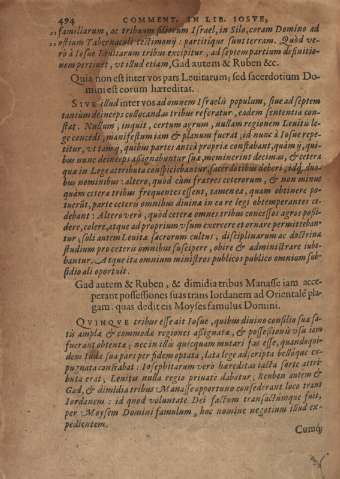 494 COMMENT. IN LIB. IOSVE,
familiarum, ac tribuum filiorum Israel, in Silo, coram Domino ad
ostium Tabernaculi testimonij: partitique sunt terram. Quod ve-
rò à Iosue Leuitarum tribus excipitur, ad septem partium diuisio-
nem pertinet, vt illud etiam, Gad autem & Ruben &c.
Quia non est inter vos pars Leuitarum; sed sacerdotium Do-
mini est eorum hæreditas.
SIVE illud inter vos ad omnem Israelis populum, siue ad septem
tantum deinceps collocandas tribus referatur, eadem sententia con-
stat. Nullum, inquit, certum agrum, nullam regionem Leuitis le-
ge concedi; manifestum iam & planum fuerat, id nunc à Iosue repe-
titur, vt tamen, quibus partes anteà propriæ constabant, quàm ij, qui-
bus nunc deinceps assignabuntur suæ, meminerint decimas, & cetera
quæ in Lege attributa conspiciebantur, sacerdotibus deberi: idque duo-
bus nominibus: altero, quòd cùm fratres ceterorum, & non minus
quàm cetera tribus frequentes essent, tamen ea, quam obtinere po-
tuerút, parte ceteris omnibus diuina in ea re legi obtemperantes ce-
debant: Altero verò, quòd ceteræ omnes tribus concessos agros possi-
dere, colere, atque ad proprium vsum exercere et ornare permittebant-
tur, soli autem Leuitæ sacrorum cultum, disciplinarum ac doctrinæ
studium pro ceteris omnibus suscipere, obire & administrare iube-
bantur. Atque ita omnium ministros publicos publico omnium sub-
sidio ali oportuit.
Gad autem & Ruben, & dimidia tribus Manasse iam acce-
perant possessiones suas trans Iordanem ad Orientalē pla-
gam: quas dedit eis Moyses famulus Domini.
QVINQVE tribus esse ait Iosue, quibus diuino consilio sua sa-
tis ampla & commoda regiones assignatæ, & possessionis vsu iam
fuerant obtentæ; nec in illis quicquam mutari fas esse, quandoqui-
dem Iudæ sua pars per fidem optata, lata lege adscripta belloque ex-
pugnata constabat: Iosephitarum verò hæreditas iacta sorte attri-
buta erat, Leuitis nulla regio priuatè dabatur, Ruben autem &
Gad, & dimidia tribus Manasse opportuno consederant loco trans
Iordanem: id quod voluntate Dei factum transactumque fuit,
per Moysem Domini famulum, hoc nomine negotium illud ex-
pedientem.
Cumq́;